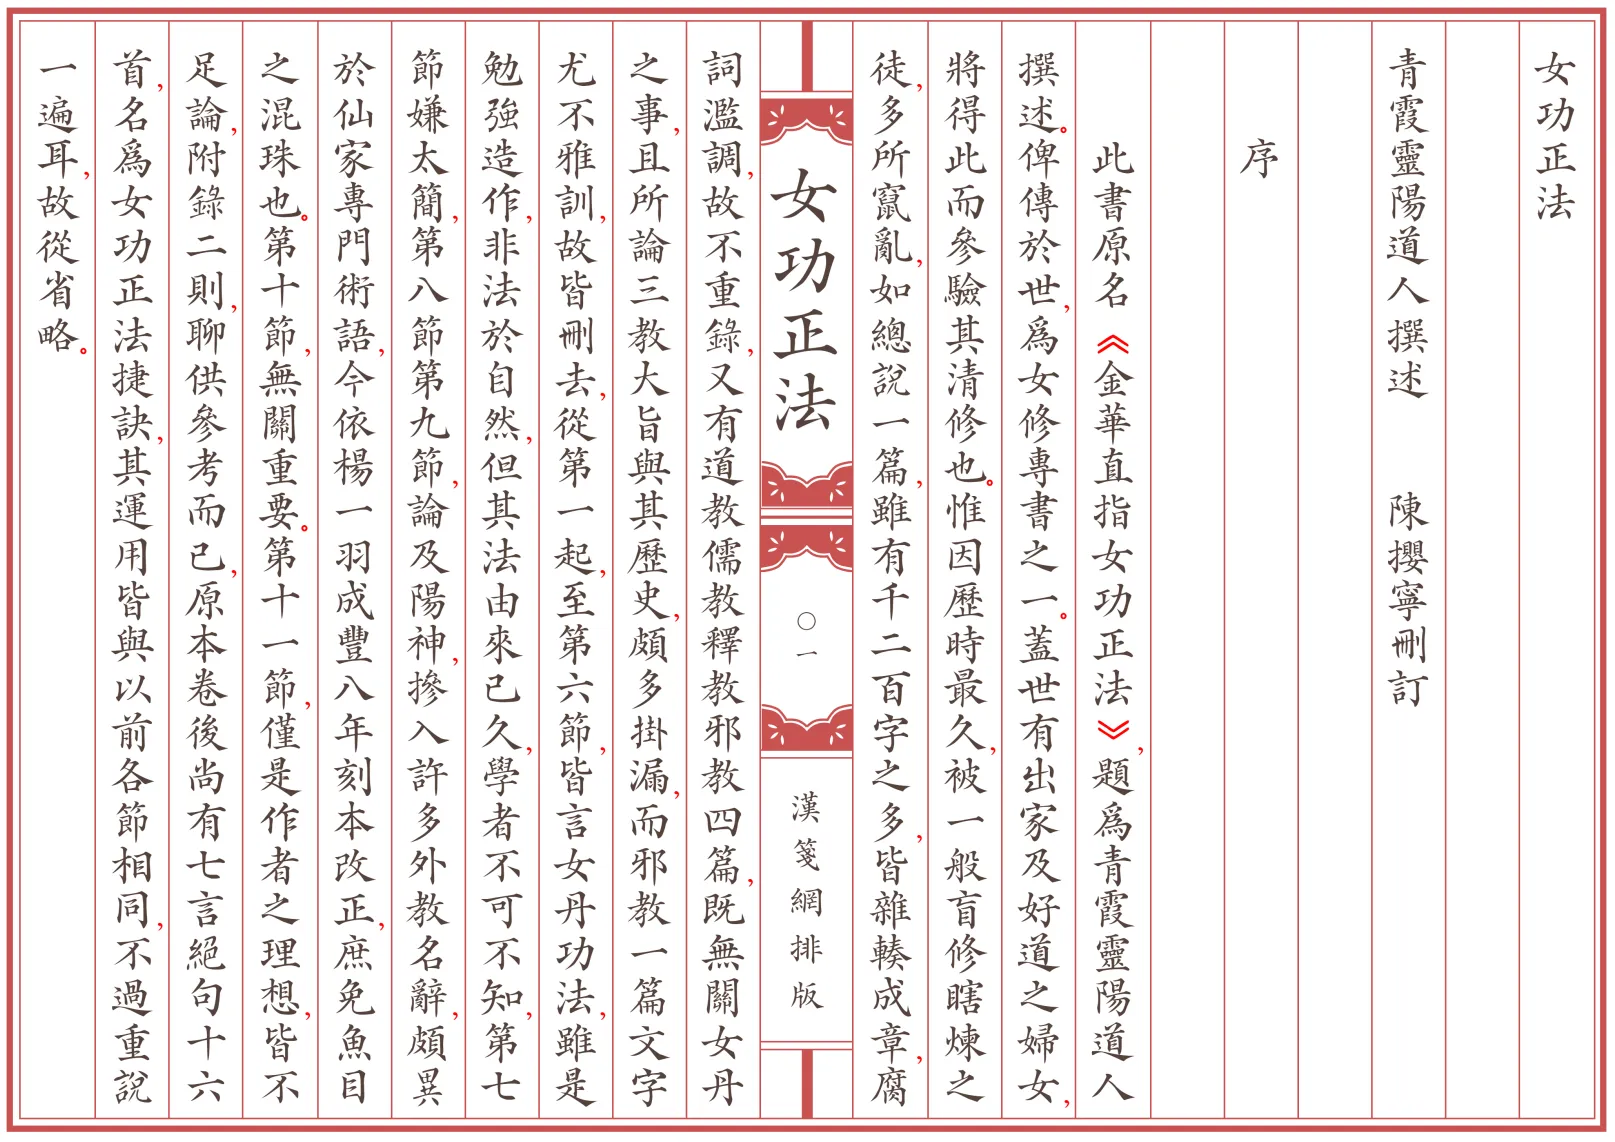 女功正法
青霞靈陽道人撰述　陳攖寧刪訂
序
此書原名《金華直指女功正法》，題爲青霞靈陽道人
撰述。俾傳於世，爲女修專書之一。蓋世有出家及好道之婦女，
將得此而參驗其清修也。惟因歷時最久，被一般盲修瞎煉之
徒，多所竄亂，如總說一篇，雖有千二百字之多，皆雜輳成章，腐
女功正法
〇一
漢箋網排版
詞濫調，故不重錄，又有道教儒教釋教邪教四篇，既無關女丹
之事，且所論三教大旨與其歷史，頗多掛漏，而邪教一篇文字
尤不雅訓，故皆刪去，從第一起，至第六節，皆言女丹功法，雖是
勉強造作，非法於自然，但其法由來已久，學者不可不知，第七
節嫌太簡，第八節第九節，論及陽神，摻入許多外教名辭，頗異
於仙家專門術語，今依楊一羽成豐八年刻本改正，庶免魚目
之混珠也。第十節，無關重要。第十一節，僅是作者之理想，皆不
足論，附錄二則，聊供參考而已，原本卷後尚有七言絕句十六
首，名爲女功正法捷訣，其運用皆與以前各節相同，不過重說
一遍耳，故從省略。